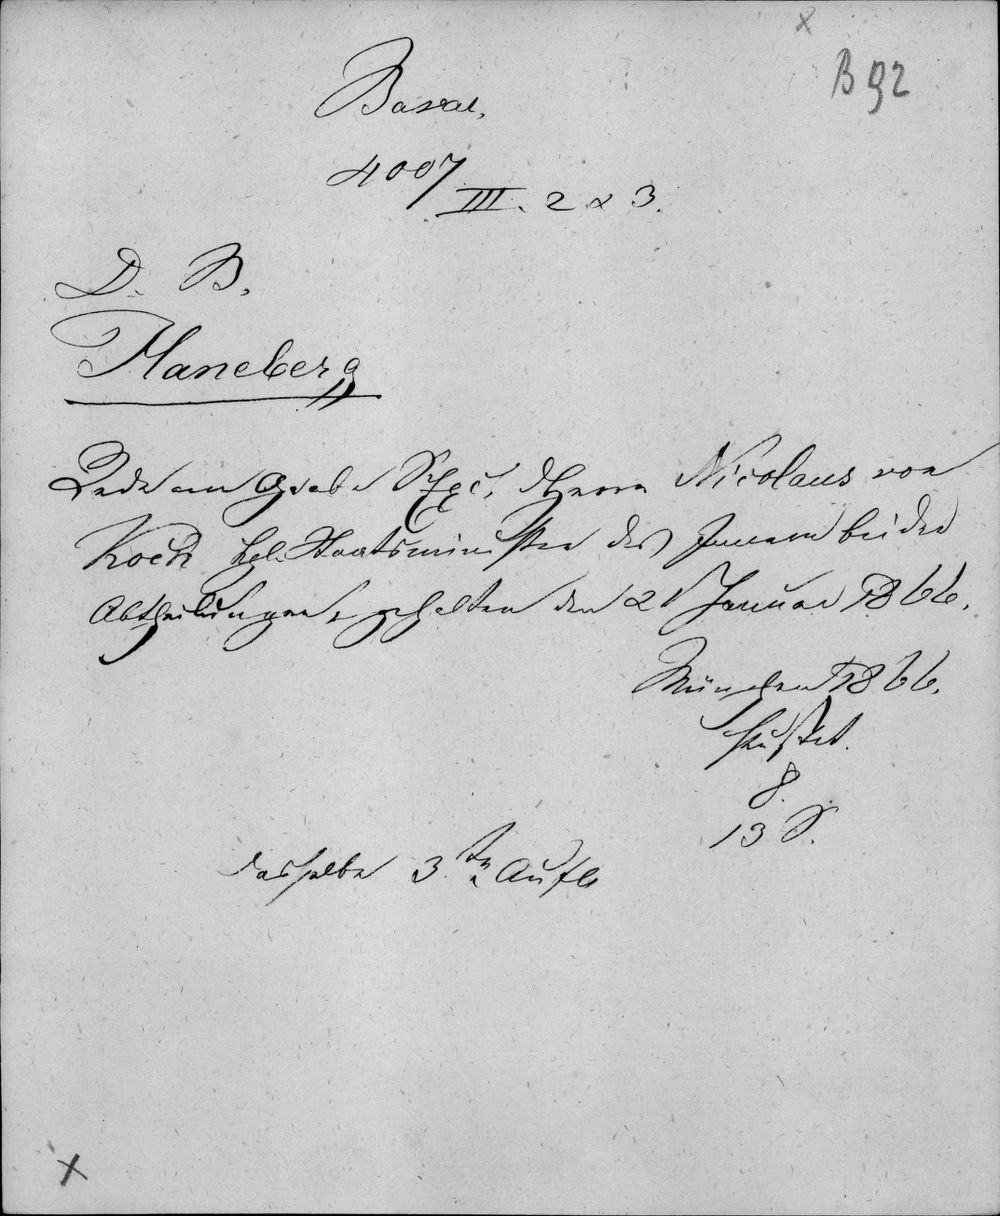 x
B 92
Bavar.
4007
III. 2 & 3.
D. B.
Haneberg
Rede am Grabe Sr. Exc. d. Herrn Nicolaus von
Koch kgl. Staatsminister des Innern beider
Abtheilungen gehalten den 21 Januar 1866.
München 1866.
Pustet.
8.
13 S.
dasselbe 3te Aufl
x